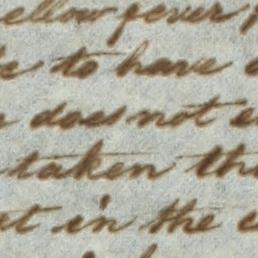 ellow fever
to have
does not
taken th
at in the